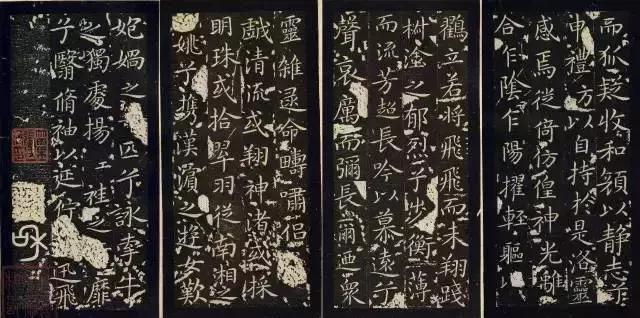 而狐疑收和顔以静志兮
申禮防以自持於是洛靈
感焉徙倚仿偟神光離
合乍陰乍陽擢輕軀以
鸖立若將飛飛而未翔踐
椒塗之郁烈兮步衡薄
而流芳超長吟以慕遠兮
聲哀厲而彌長爾迺衆
靈雜遝命疇嘯侶
戯清流或翔神渚或採
明珠或拾翠羽從南湘之
姚兮攜漢濱之遊女歎
媧之匹兮詠牽牛
之獨處揚袿之靡
兮翳脩袖以延佇迅飛